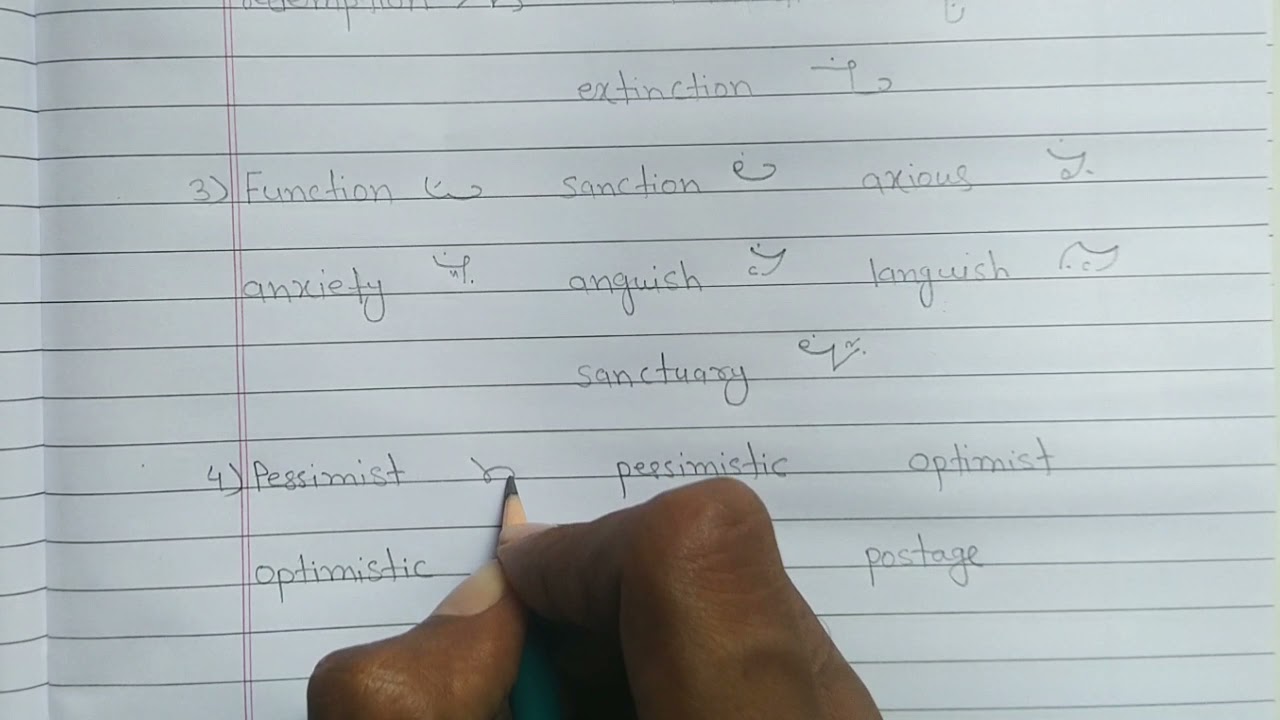 extinction
3) Function sanction axious
anxiety anguish languish
sanctuary
4) Pessimist pessimistic optimist
optimistic postage